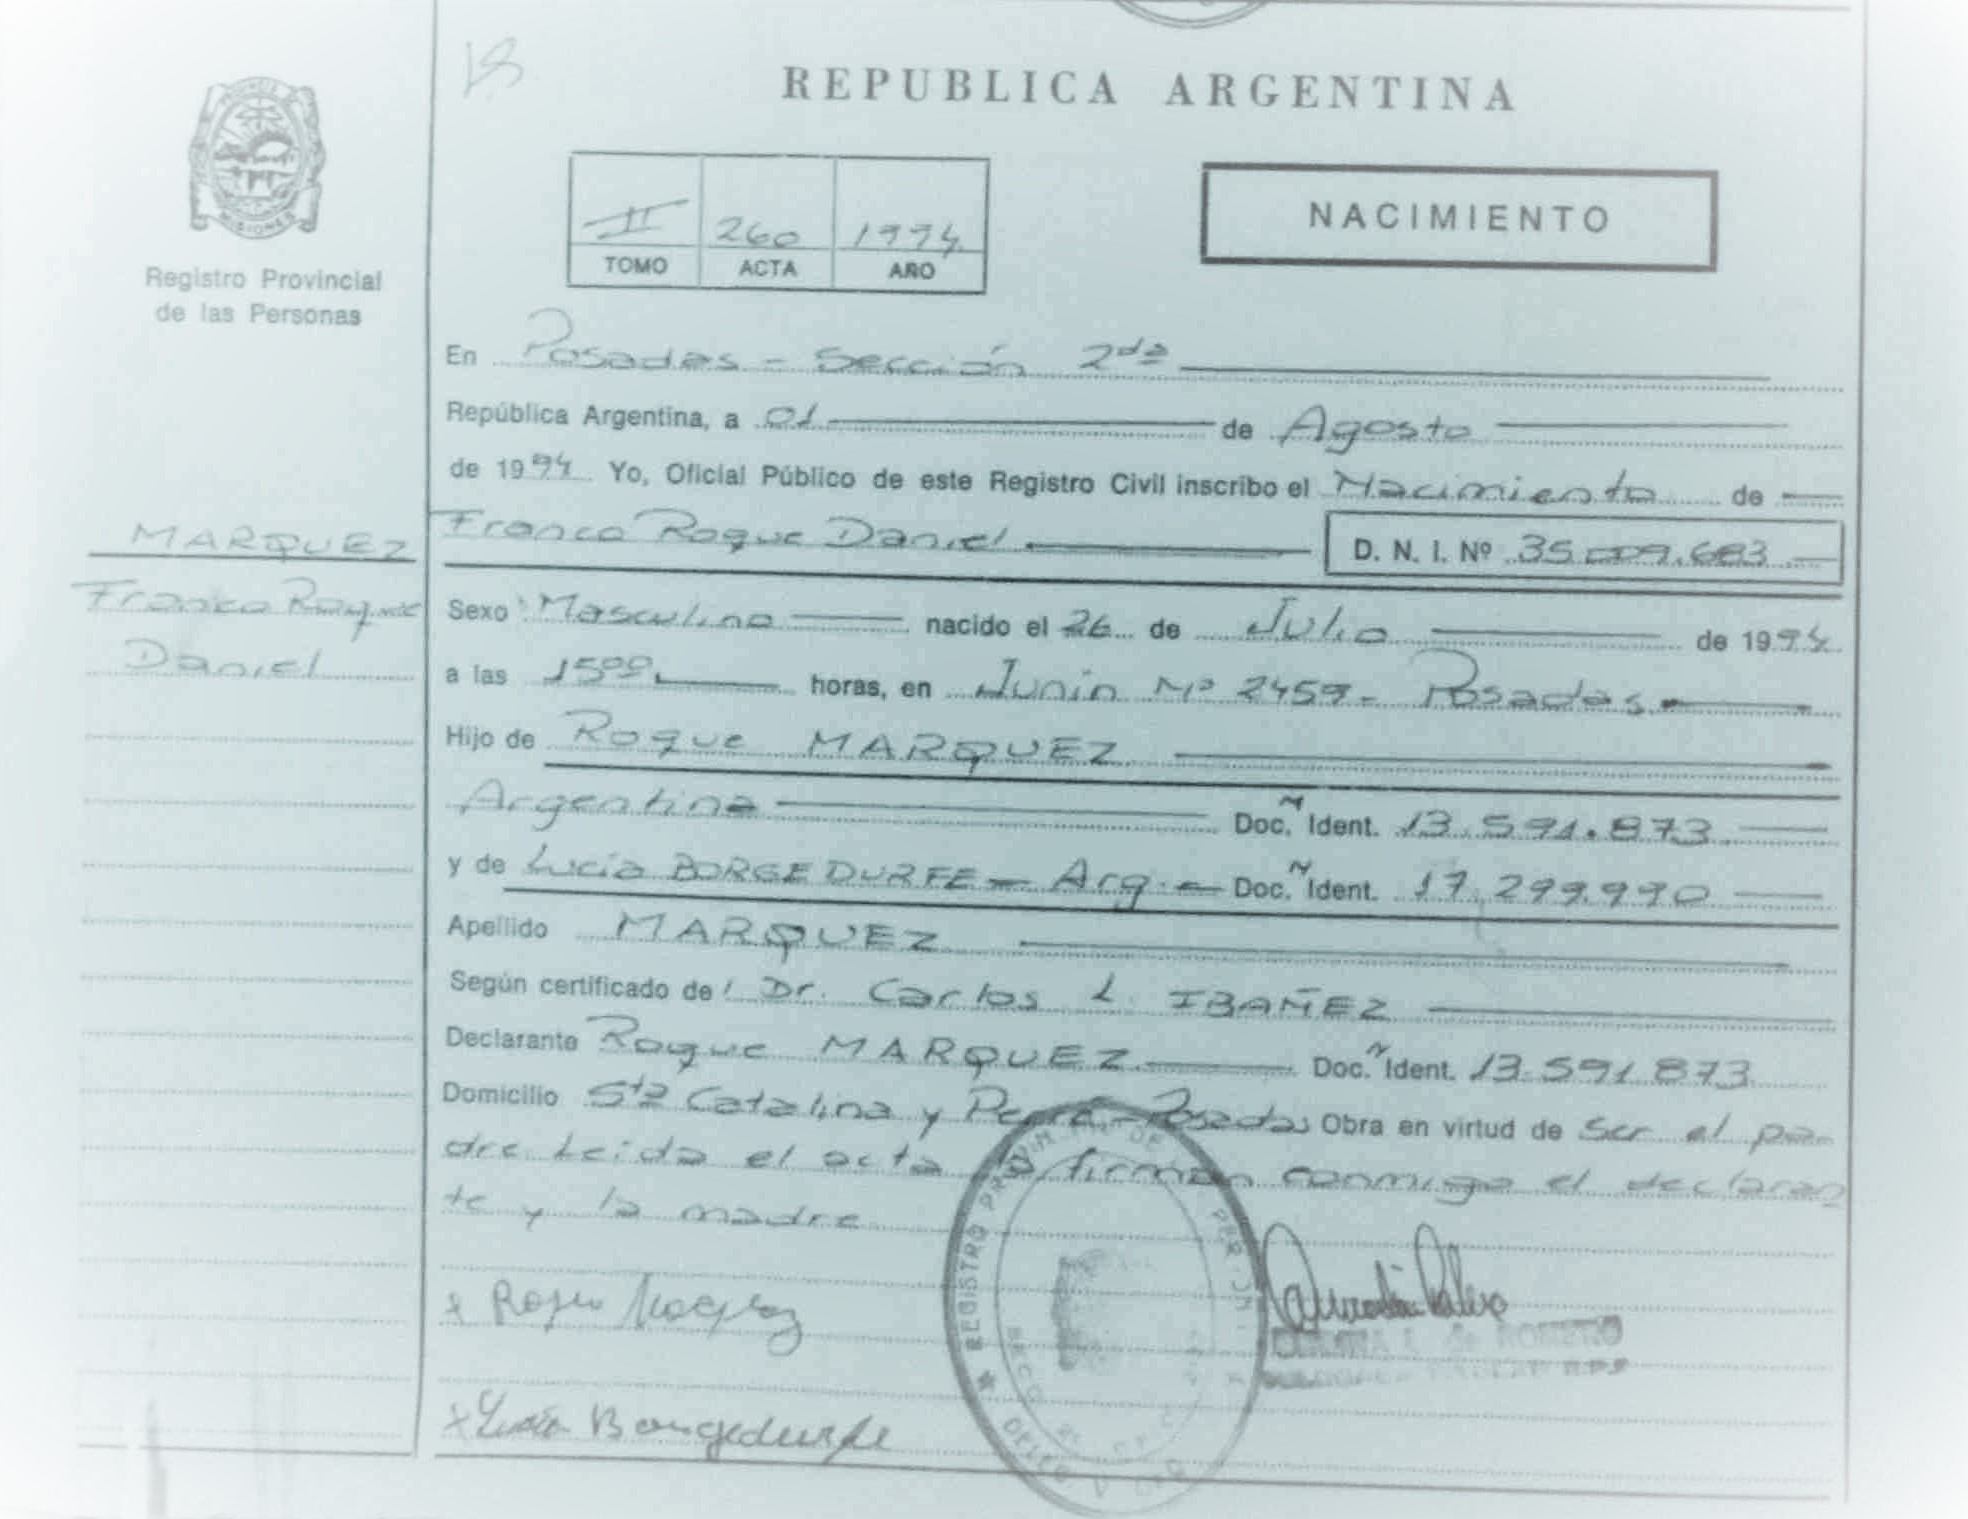 REPUBLICA ARGENTINA
MISIONES
Registro Provincial
de las Personas
II 260 1994
TOMO ACTA AÑO
NACIMIENTO
En Posadas - Sección 2da
República Argentina, a 01 de Agosto
de 1994 Yo, Oficial Público de este Registro Civil inscribo el Nacimiento de
MARQUEZ
Franco Roque Daniel
Franco Roque Daniel D. N. I. Nº 35.009.683
Sexo Masculino nacido el 26 de Julio de 1994
a las 1500 horas, en Junín Nº 2459 - Posadas
Hijo de Roque MARQUEZ
Argentina Doc. N Ident. 13.591.873
y de Lucía BORGEDURFE - Arg. - Doc. N Ident. 17.299.990
Apellido MARQUEZ
Según certificado de Dr. Carlos L. IBAÑEZ
Declarante Roque MARQUEZ Doc. N Ident. 13.591.873
Domicilio Sta Catalina y - Posadas Obra en virtud de Ser el pa-
dre Leida el acta la firman conmigo el declaran
te y la madre
x Roque Marquez
x Lucía Borgedurfe
REGISTRO